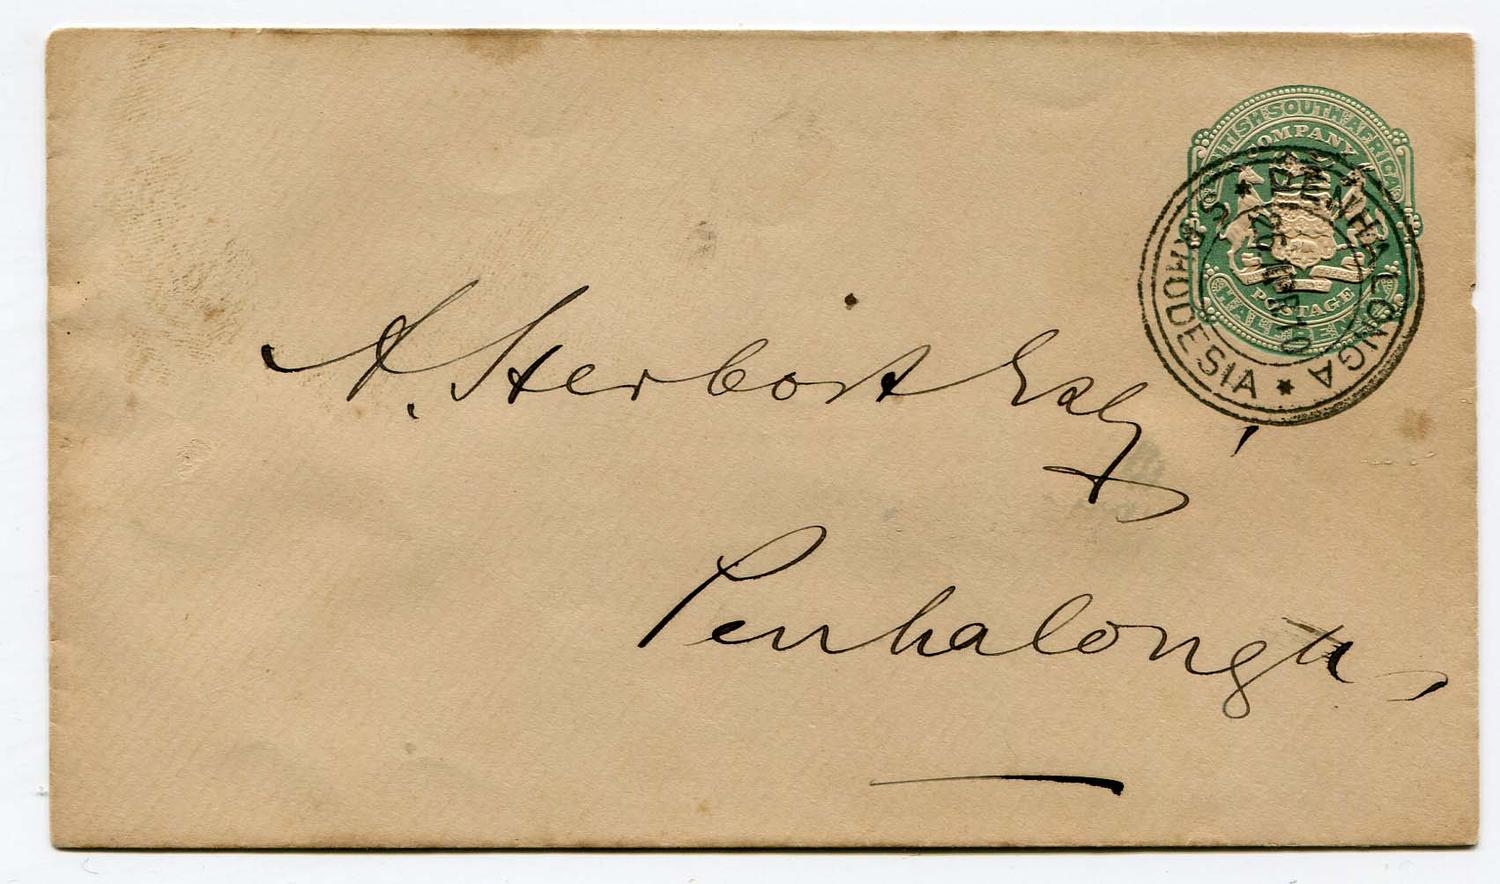 BRITISH SOUTH AFRICA
COMPANY
POSTAGE
HALF PENNY
PENHALONGA
S. RHODESIA
A. Sterbost Esq
Penhalonga,